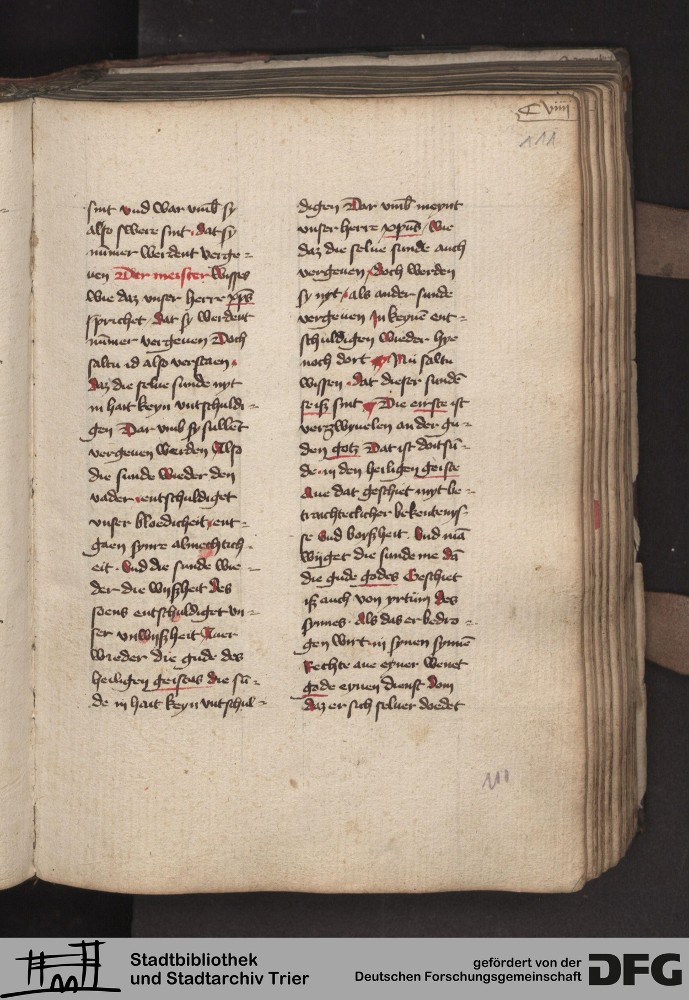 C viiij
111
sint vnd war vmb sy
also swere sint · dat sy
nūmer werdent verge=
uen Der meister wisses
wie daz vnser herre xps
sprichet dat sy werdent
nūmer vergeuen Doch
saltu id also verstaen ·
daz die selue sunde nyt
in hait keyn vntschuldi=
gen Dar vmb sy sullēt
vergeuen werden Also
die sunde wieder den
vader · entschuldiget
vnser bloedicheit · ent=
gaen synre almechtich=
eit · Vnd die sunde wie=
der die wyßheit des
soens entschuldiget vn=
ser vnwyßheit Auer
wieder die gude des
heiligen geistas die sū=
de in hait keyn vntschul=
digen Dar vmb meynt
vnser herre xpus / wie
daz die selue sunde auch
vergeuen / doch werden
sy nyt / als ander sunde
vergeuen In keynē ent=
schuldigen wieder hye
noch dort Nū saltu
wissen · dat dieser sundē
seiß sint Die eirste ist
verzwyuelen an der gu=
den gotz Dat ist doitsū=
de · in den heiligen geiste
Aue dat geschiet myt be=
traichteclicher bekentenys=
se Vnd boyßheit · Vnd mā
wijget die sunde me dā
die gude godes Geschiet
iß auch von yrtūm des
synnes · Als das er bedro=
gen wirt in synen synnē
Rechte aue eyner wenet
gode eynen dienst doin
daz er sich seluer doedet
111
Stadtbibliothek
und Stadtarchiv Trier
gefördert von der
Deutschen Forschungsgemeinschaft
DFG